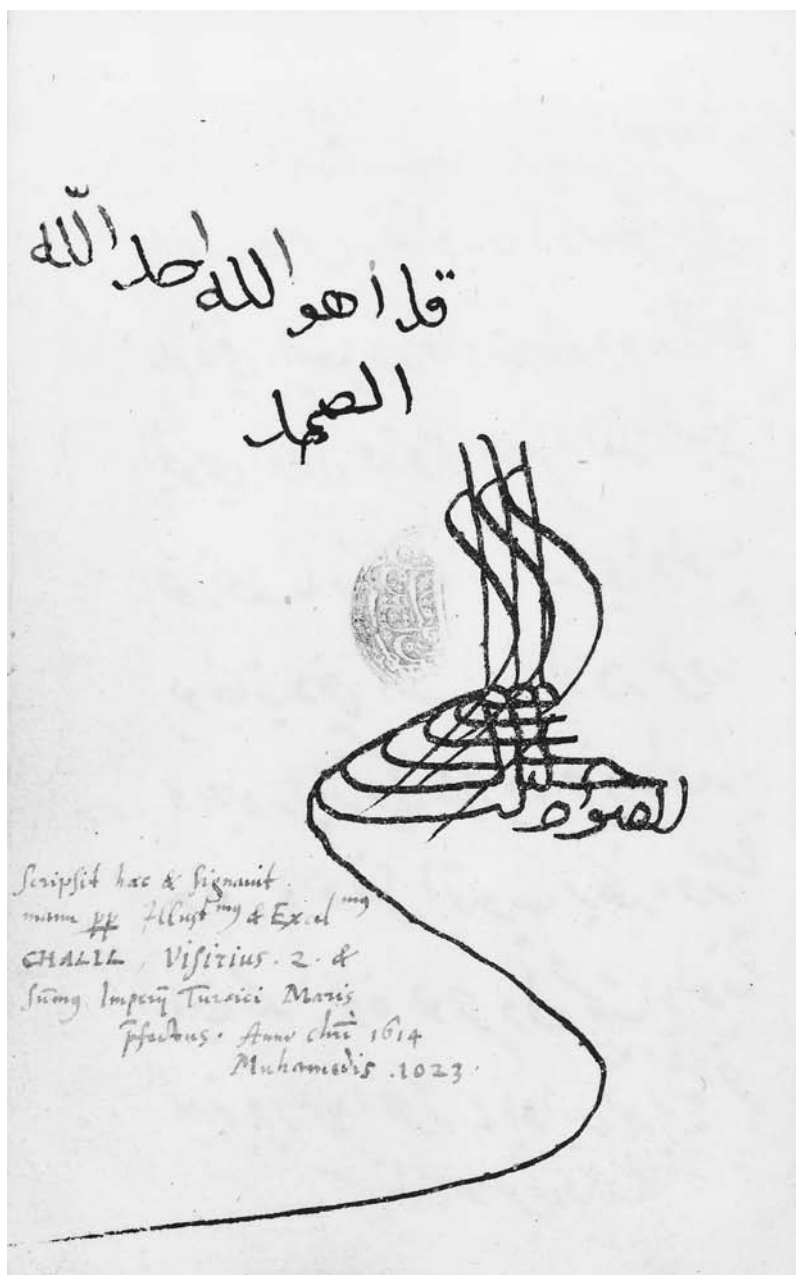 قل اهو الله احد الله
الصمد
Scripsit hæc & signauit
manu pp Illustmus & Excelmus
CHALIL, Visirius. 2. &
Sumus Imperij Turcici Maris
pfectus. Anno chri 1614
Muhamedis .1023.